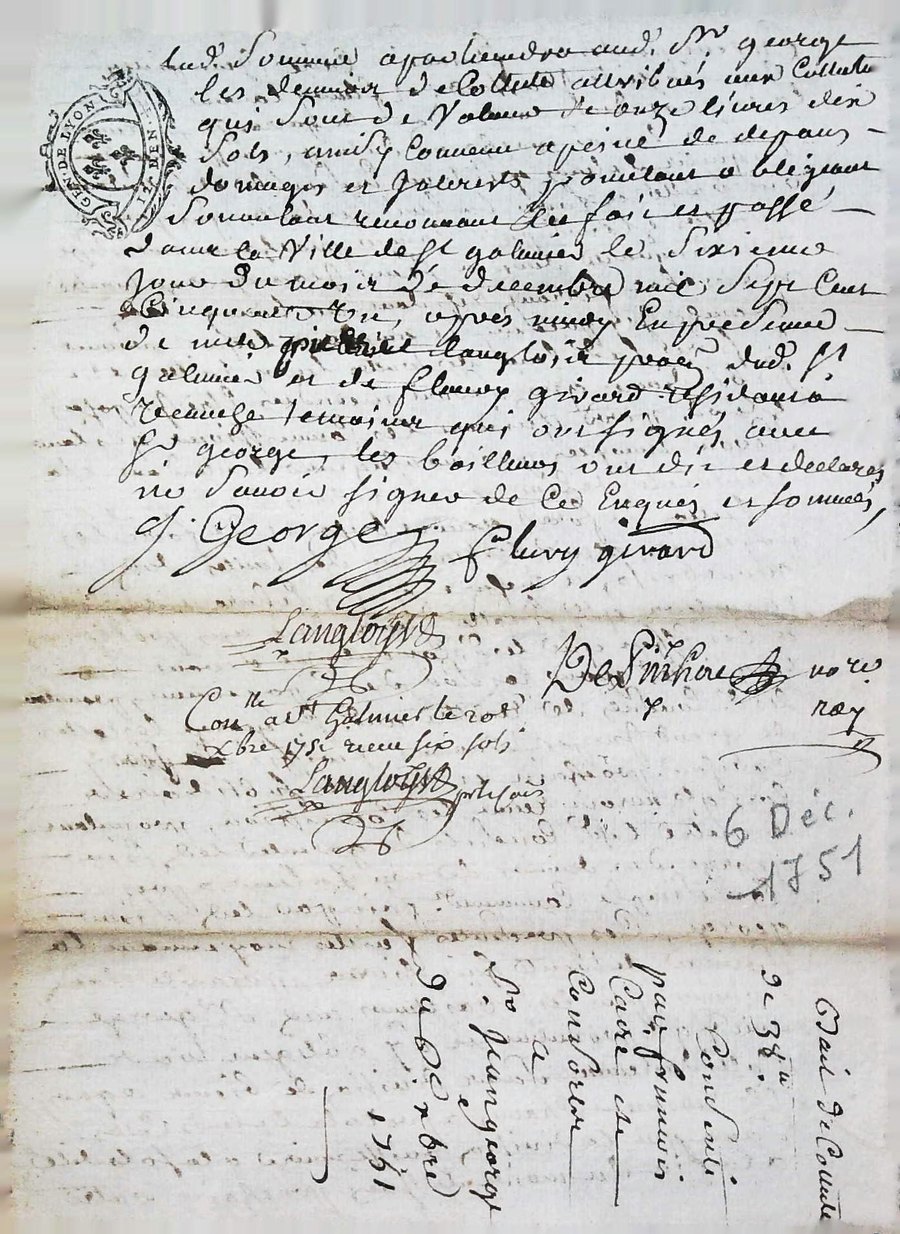 lad. Somme apartiendra aud. Sr. george
les deniers de Collecte attribués aux Collecte
qui Sont de Valeur de onze livres dix
Sols, ainsy Convenu a peine de depans
domages et Interets
renonçant fait et passé
dans la Ville de St galmier le Sixieme
Jour du mois de decembre mil Sept Cent
Cinquante un, apres midy En presence
de me langlois dud. St
galmier et de fleury girard residant a
temoins qui ont signés avec
Sr george, les bailleurs ont dit et declarés
ne Savoir signer de Ce Enquis et sommés,
J. George
flury girard
Langloys
nore
roy
Con.lle a St Galmier le
xbre 1751 six sols
Langloys
6 Déc.
1751
GEN. DE LYON
Bail de
Consenti
par francois
Consorts
a
Sr Jean george
du 6e Xbre
1751